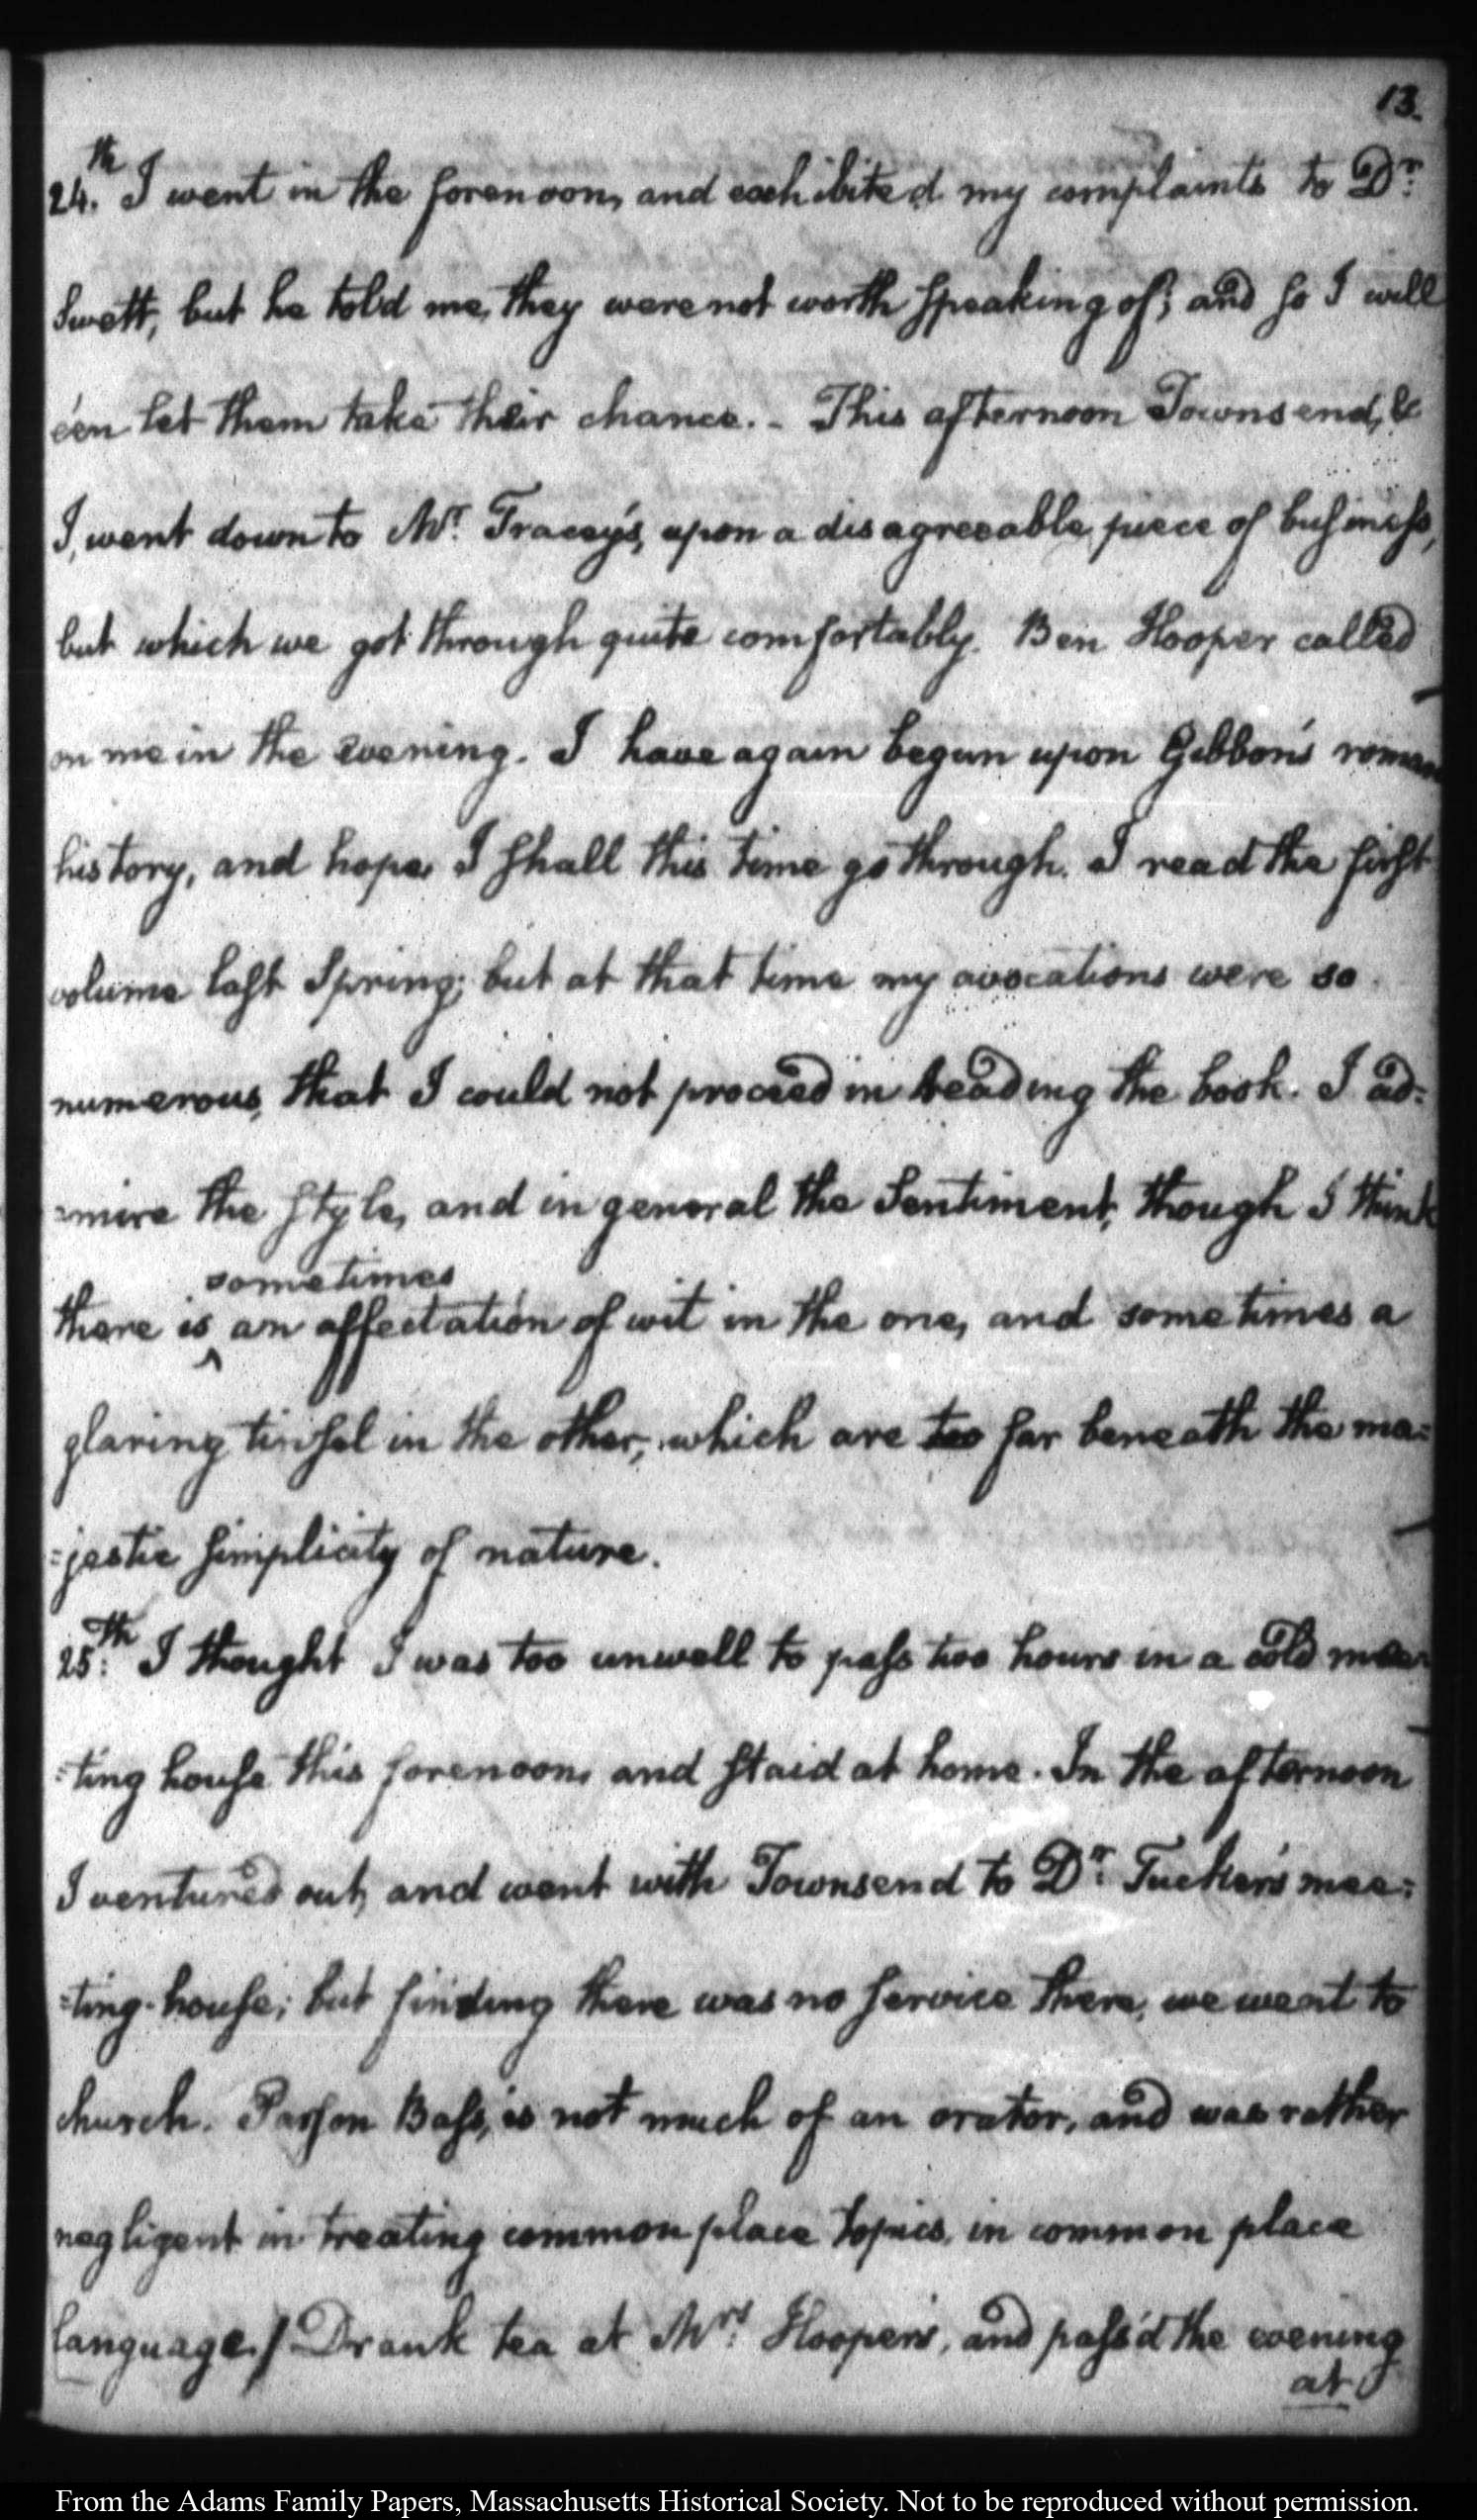 13.
24.th I went in the forenoon, and exhibited my complaints to Dr:
Swett, but he told me, they were not worth speaking of; and so I will
e'en let them take their chance. - This afternoon Townsend, &
I, went down to Mr. Tracey's, upon a disagreeable piece of business,
but which we got through quite comfortably. Ben Hooper called
on me in the evening. I have again begun upon Gibbon's roman
history, and hope, I shall this time go through. I read the first
volume last Spring; but at that time my avocations were so
numerous, that I could not proceed in reading the book. I ad:
=mire the style, and in general the Sentiment, though I think
sometimes
there is ^ an affectation of wit in the one, and sometimes a
glaring tinsel in the other, which are too far beneath the ma=
=jestic simplicity of nature.
25:th I thought I was too unwell to pass two hours in a cold mee=
=ting house this forenoon, and staid at home. In the afternoon
I ventured out, and went with Townsend to Dr: Tucker's mee=
=ting-house; but finding there was no service there, we went to
church. Parson Bass, is not much of an orator, and was rather
negligent in treating common place topics, in common place
language./ Drank tea at Mrs: Hooper's, and pass'd the evening
at
From the Adams Family Papers, Massachusetts Historical Society. Not to be reproduced without permission.